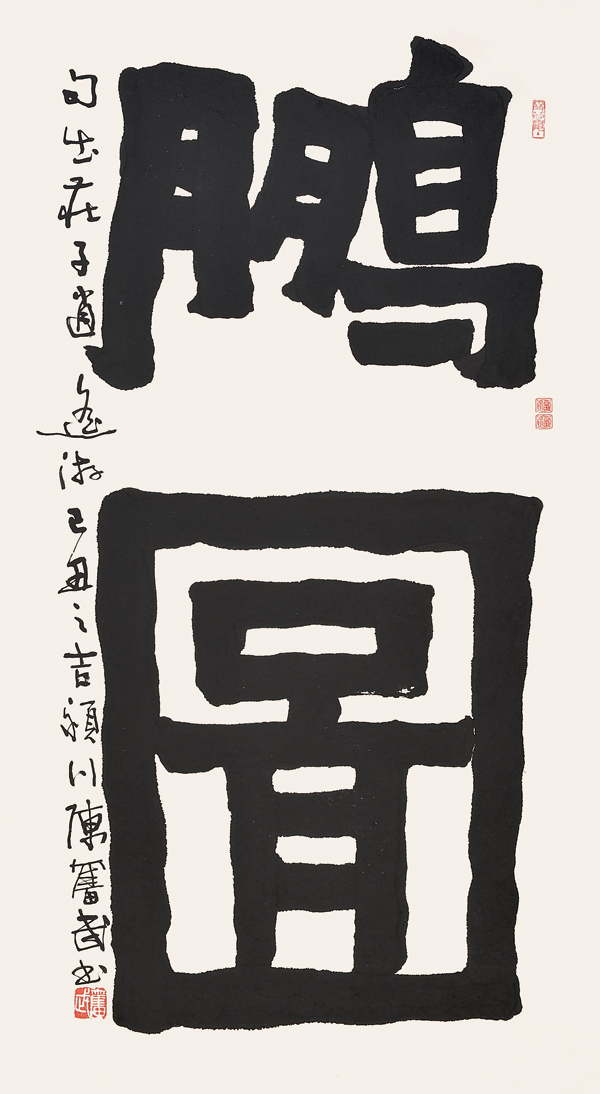 鵬圖
句出莊子逍遙游己丑之吉潁川陳奮武书
奮武